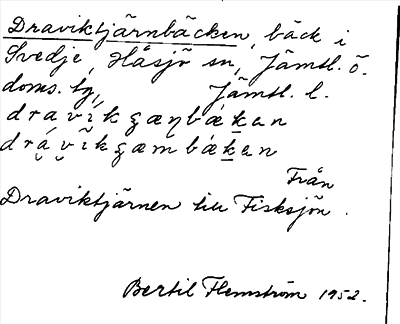 Draviktjärnbäcken, bäck i
Svedje, Håsjö sn, Jämtl. ö.
doms. tg, Jämtl. l.
dravik
drávik
Från
Draviktjärnen till Fisksjön.
Bertil Flemström 1952.